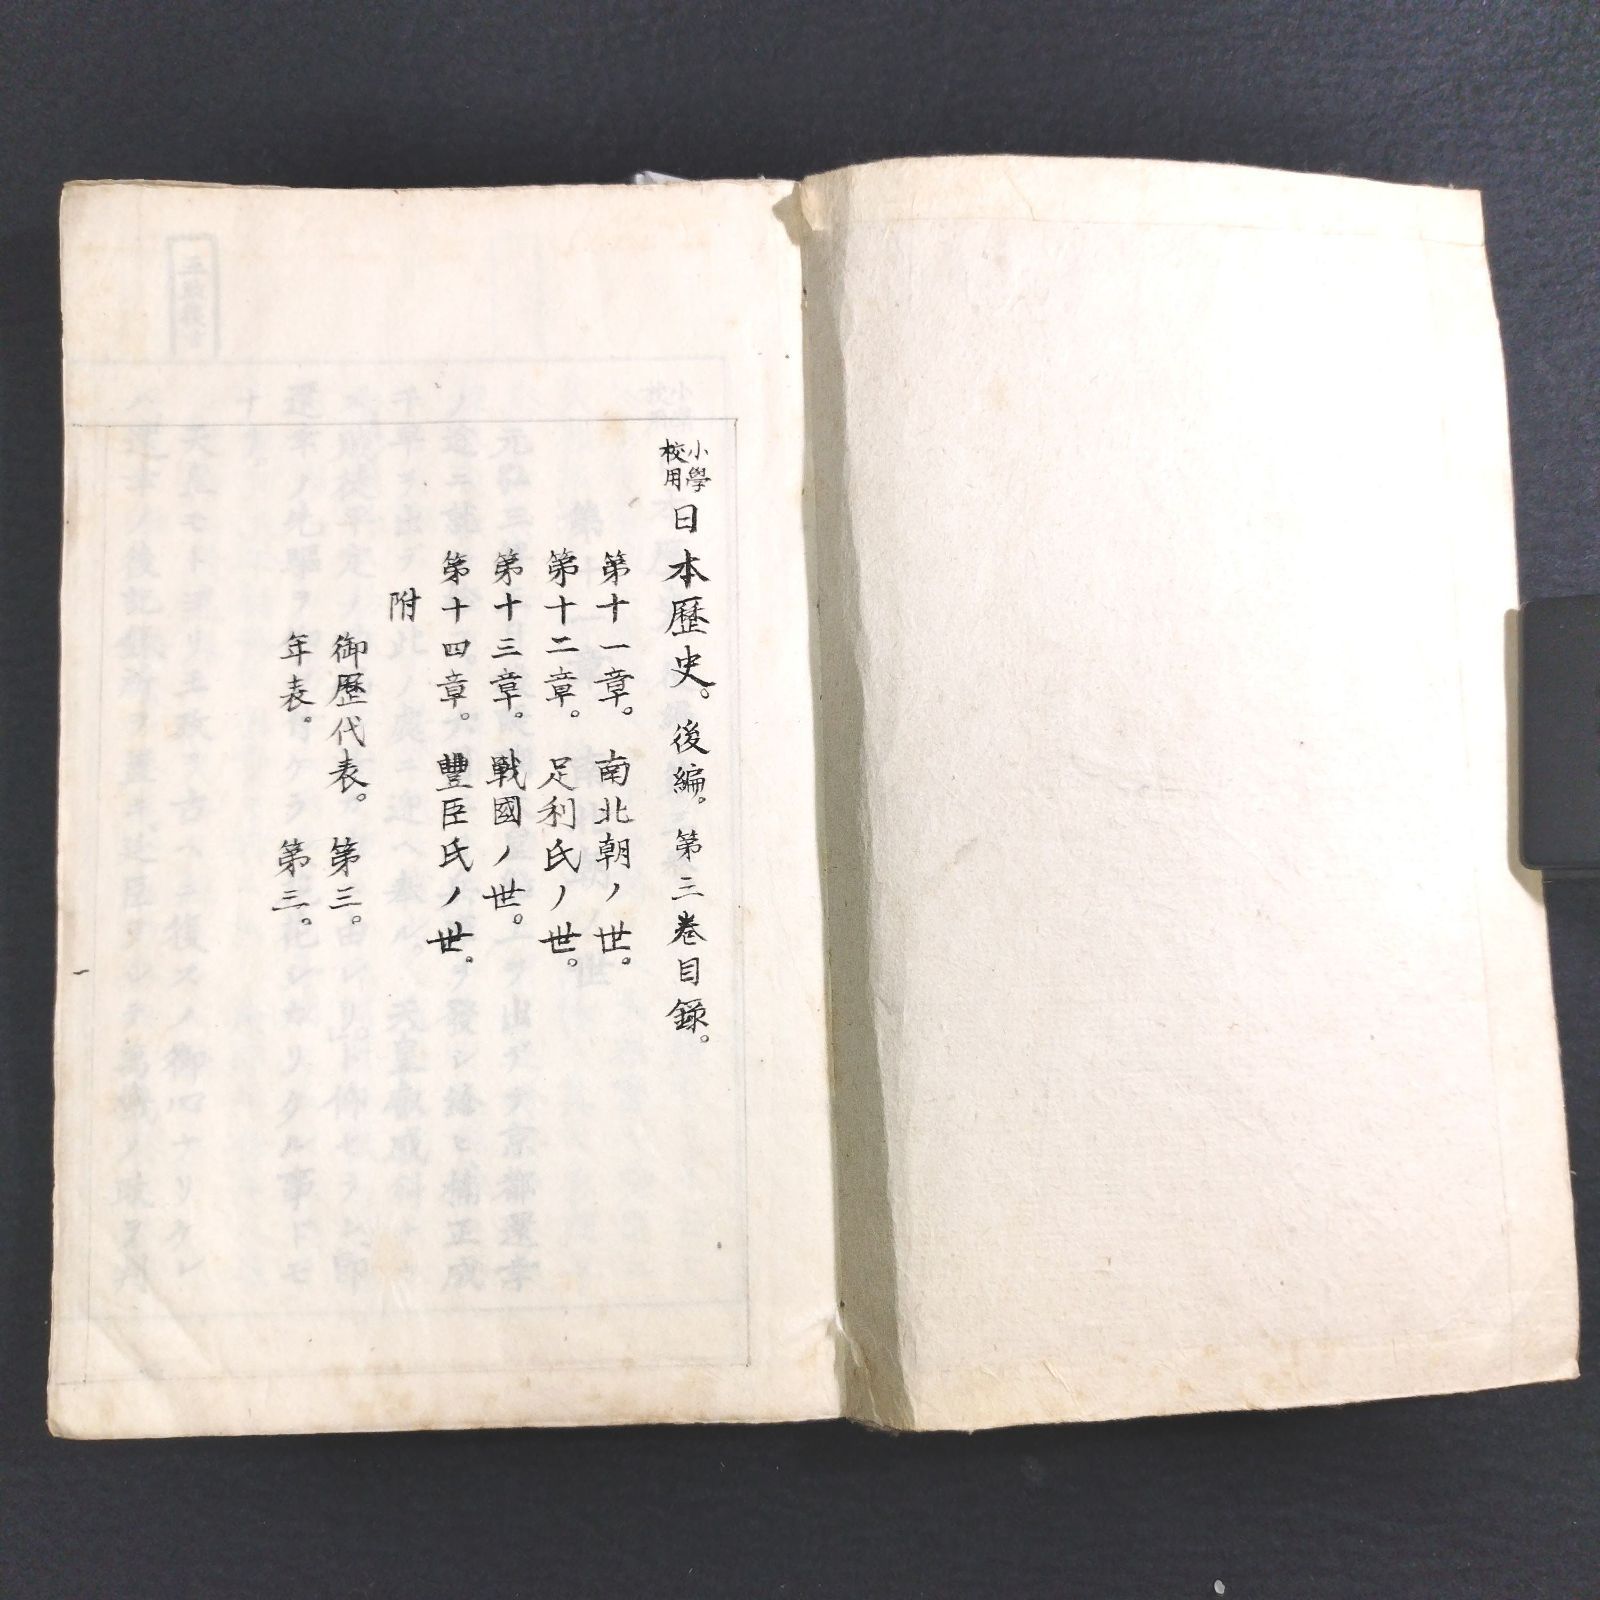 小學校用日本歷史。後編。第三卷目錄。
第十一章。南北朝ノ世。
第十二章。足利氏ノ世。
第十三章。戰國ノ世。
第十四章。豐臣氏ノ世。
附
御歷代表。第三。
年表。第三。